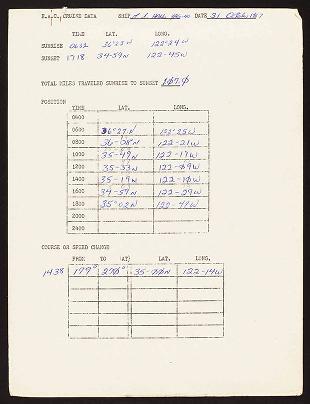 R.A.C. CRUISE DATA SHIP DATE 31 October 197
TIME LAT. LONG.
SUNRISE 0632 36°23N 122-24W
SUNSET 1718 34-59N 122-45W
TOTAL MILES TRAVELED SUNRISE TO SUNSET 107.0
POSITION
TIME LAT. LONG.
0400
0600 36°27N 122°25W
0800 36-08N 122-21W
1000 35-49N 122-17W
1200 35-33N 122-09W
1400 35-19N 122-10W
1600 34-57N 122-29W
1800 35°02N 122-47W
2000
2200
2400
COURSE OR SPEED CHANGE
FROM TO (AT) LAT. LONG.
1438 179° 270° 35-00N 122-14W